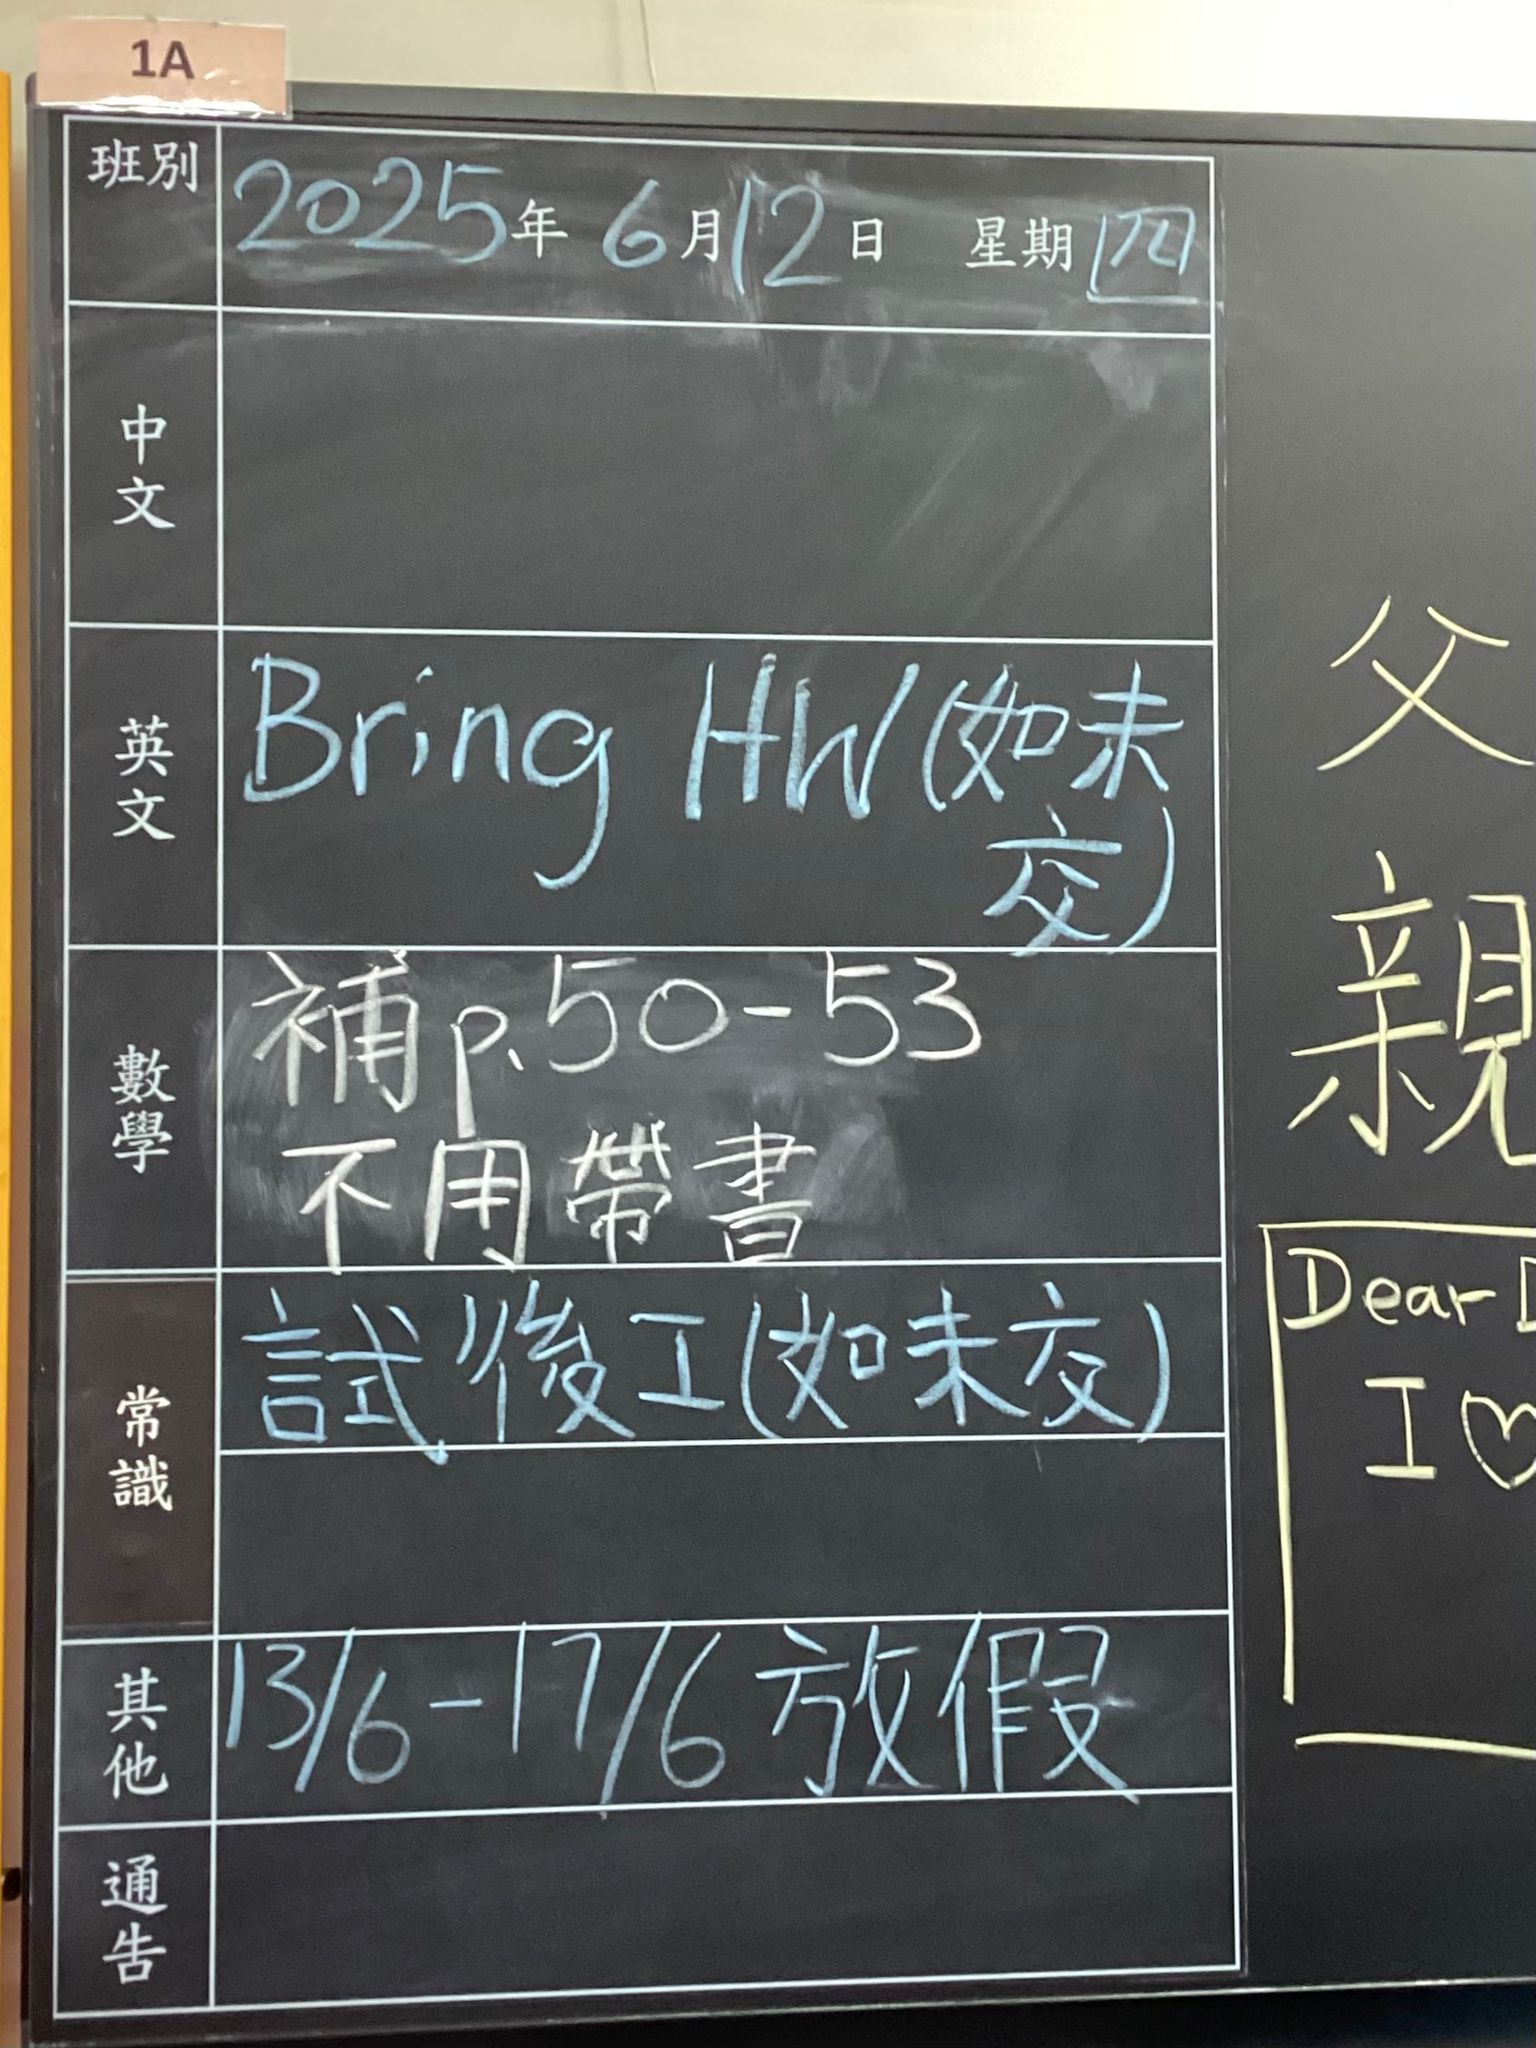 1A
班別
2025年 6月12日 星期四
中文
英文
Bring HW (如未
交)
數學
補 p.50-53
不用帶書
常識
試後工(如未交)
其他
13/6-17/6 放假
通告
父
親
Dear
I ♡